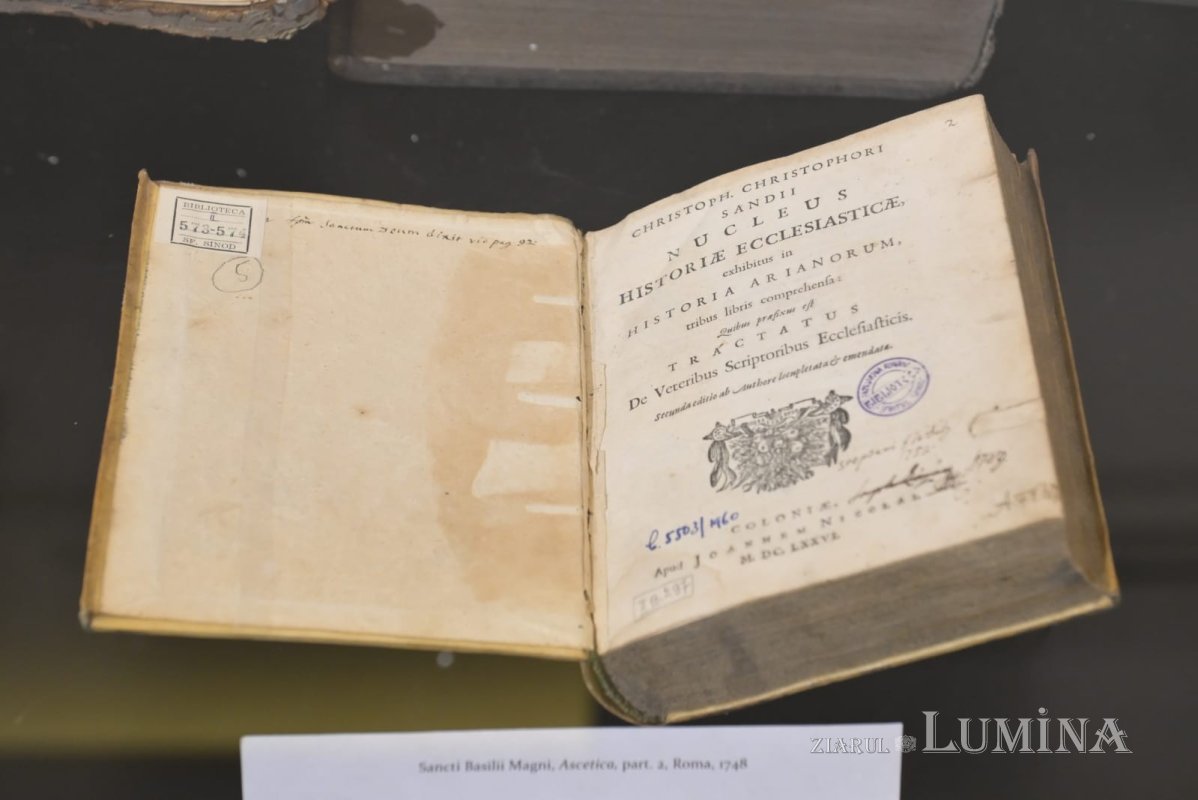 BIBLIOTECA
II
573-574
SF. SINOD
Sanctum Deum dixit vid pag. 92.
5
2
CHRISTOPH. CHRISTOPHORI
SANDII
NUCLEUS
HISTORIÆ ECCLESIASTICÆ,
exhibitus in
HISTORIA ARIANORUM,
tribus libris comprehensa:
Quibus præfixus est
TRACTATUS
De Veteribus Scriptoribus Ecclesiasticis.
Secunda editio ab Authore locupletata & emendata.
1709
b.5503/1960
COLONIÆ,
Apud JOANNEM NICOLAI
M. DC. LXXVI.
Sancti Basilii Magni, Ascetica, part. 2, Roma, 1748
ZIARUL LUMINA